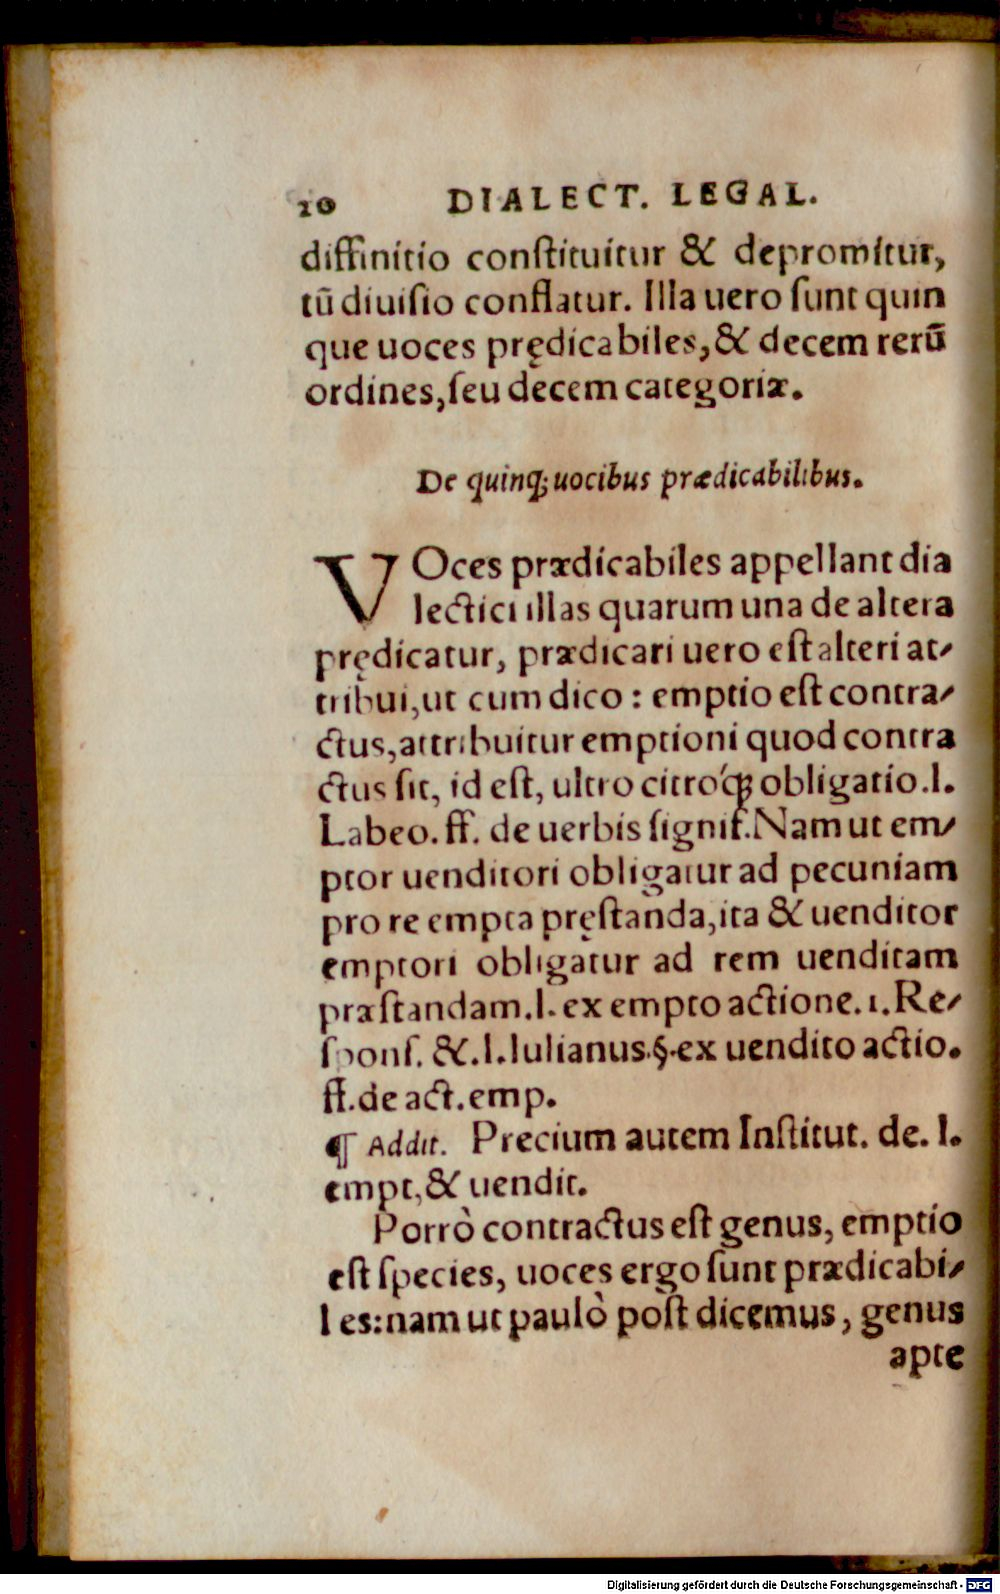 10 DIALECT. LEGAL.
diffinitio conſtituitur & depromitur,
tū diuiſio conflatur. Illa uero ſunt quin
que uoces prędicabiles, & decem rerū
ordines, ſeu decem categoriæ.
De quinq; uocibus prædicabilibus.
VOces prædicabiles appellant dia
lectici illas quarum una de altera
prędicatur, prædicari uero eſt alteri at-
tribui, ut cum dico: emptio eſt contra-
ctus, attribuitur emptioni quod contra
ctus ſit, id eſt, ultro citróq; obligatio. l.
Labeo. ff. de uerbis ſignif. Nam ut em-
ptor uenditori obligatur ad pecuniam
pro re empta pręſtanda, ita & uenditor
emptori obligatur ad rem uenditam
præſtandam. l. ex empto actione. 1. Re-
ſponſ. &. l. Iulianus. §. ex uendito actio.
ff. de act. emp.
¶ Addit. Precium autem Inſtitut. de. l.
empt, & uendit.
Porrò contractus eſt genus, emptio
eſt ſpecies, uoces ergo ſunt prædicabi-
les: nam ut paulò poſt dicemus, genus
apte
Digitalisierung gefördert durch die Deutsche Forschungsgemeinschaft - DFG